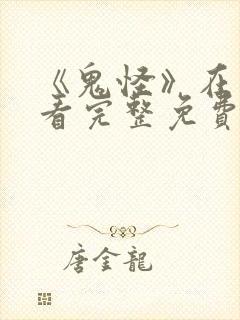 《鬼怪》在
看完整免費
唐金龍